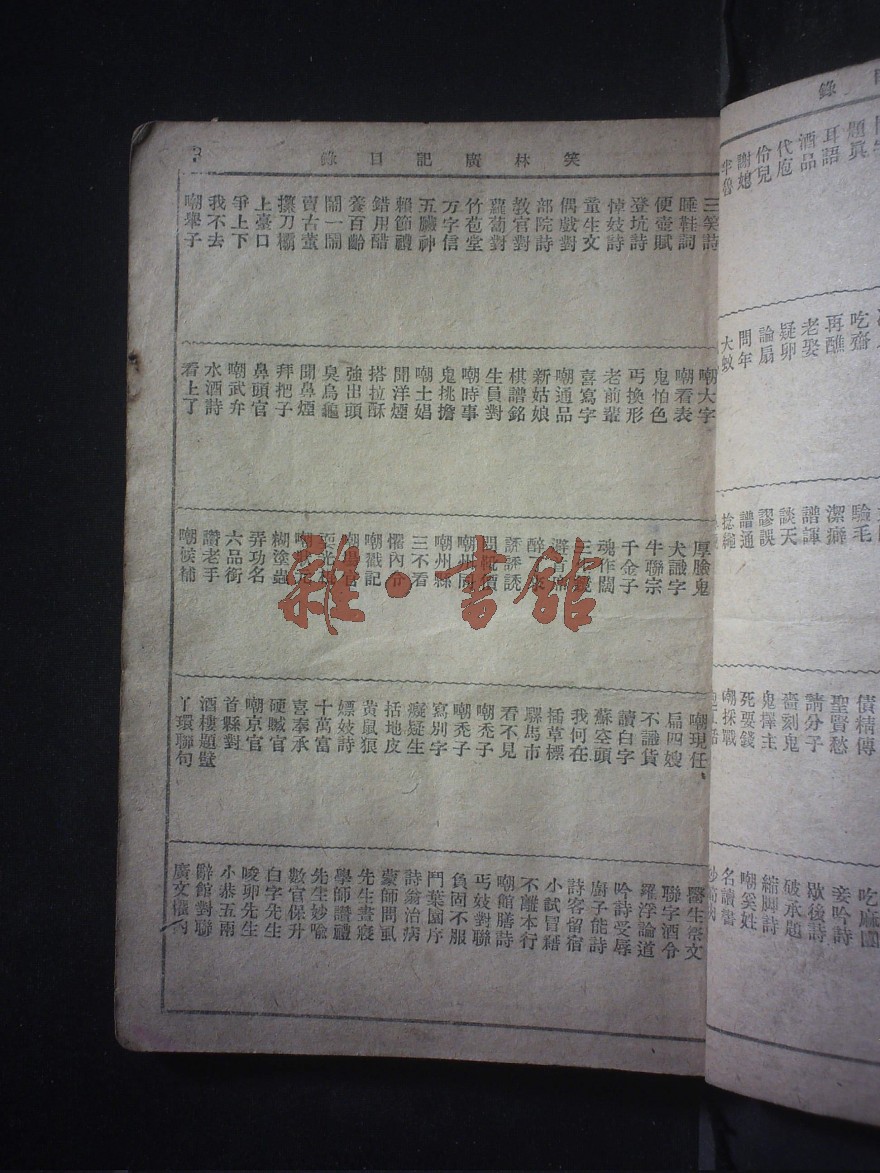 笑林廣記目錄
三笑詩
睡鞋詞
便壺賦
登坑詩
悼妓詩
童生文
偶戲對
部院詩
教官對
蘿蔔對
竹苞堂
万字信
五臟神
賴節禮
錯用醋
養百齡
鬧一鬧
賣古董
攥刀欛
上臺口
爭上下
我不去
嘲舉子
嘲大字
嘲看表
鬼怕色
丐換形
老前輩
喜寫字
嘲通品
新姑娘
棋譜銘
生員對
嘲時事
鬼挑擔
嘲土娼
聞洋煙
搭拉酥
強出頭
臭烏龜
聞鼻煙
拜把子
鼻頭官
嘲武弁
水酒詩
看上了
厚臉鬼
犬識字
牛聯宗
千金子
魂作闊
嘲州縣
三不看
懼內令
嘲戳記
糊塗蟲
弄功名
六品銜
讚老手
嘲候補
嘲現任
扁四嫂
不識貨
讀白字
蘇空頭
我何在
插草標
騾馬市
看不見
嘲禿子
寫別字
癡疑生
括地皮
黃鼠狼
嫖妓詩
十萬富
喜奉承
硬贓官
嘲京官
首縣對
酒樓題壁
丫環聯句
醫生祭文
聯字酒令
羅浮論道
吟詩受辱
廚子能詩
詩客留宿
小試冒籍
不離本行
嘲館膳詩
丐妓對聯
負固不服
鬥葉園序
詩翁治病
蒙師問虱
先生晝寢
學師讚禮
先生妙喻
數官保升
白字先生
唆卵先生
小恭五兩
辭館對聯
題真
耳語
酒品
代庖
伶兒
謝媳
吃齋
再醮
老娶
疑卵
論扇
問年
大蚊
驗毛
潔癖
譜諢
談天
謬誤
譜通
捻繩
債精傳
聖賢愁
請分子
嗇刻鬼
鬼擇主
死要錢
嘲採戰
吃麻團
妾吟詩
歇後詩
破承題
縮腳詩
嘲奚姓
名讀書